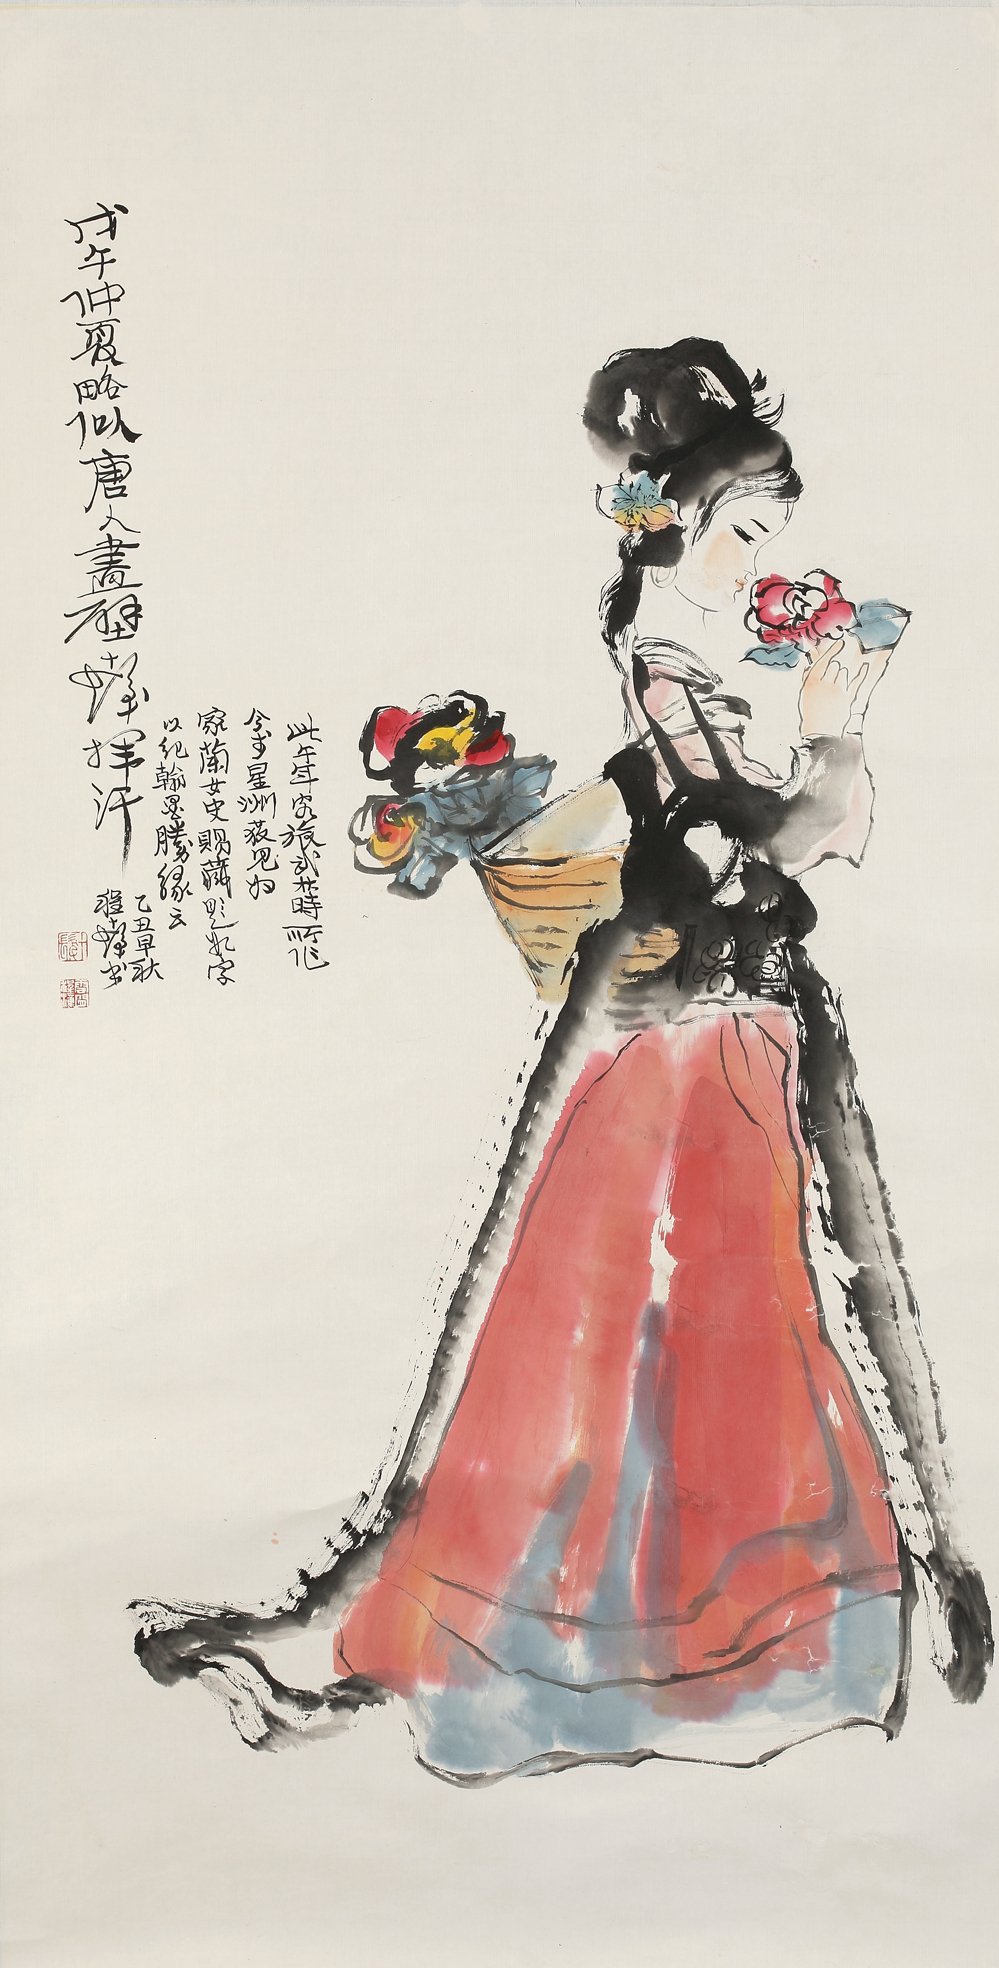 戊午仲夏略似唐人畫壁十髮揮汗
此午年客旅武林時所作
今于星洲荻见为
家蘭女史賜藏題字
以紀翰墨勝緣云
乙丑早秋
程十髮书